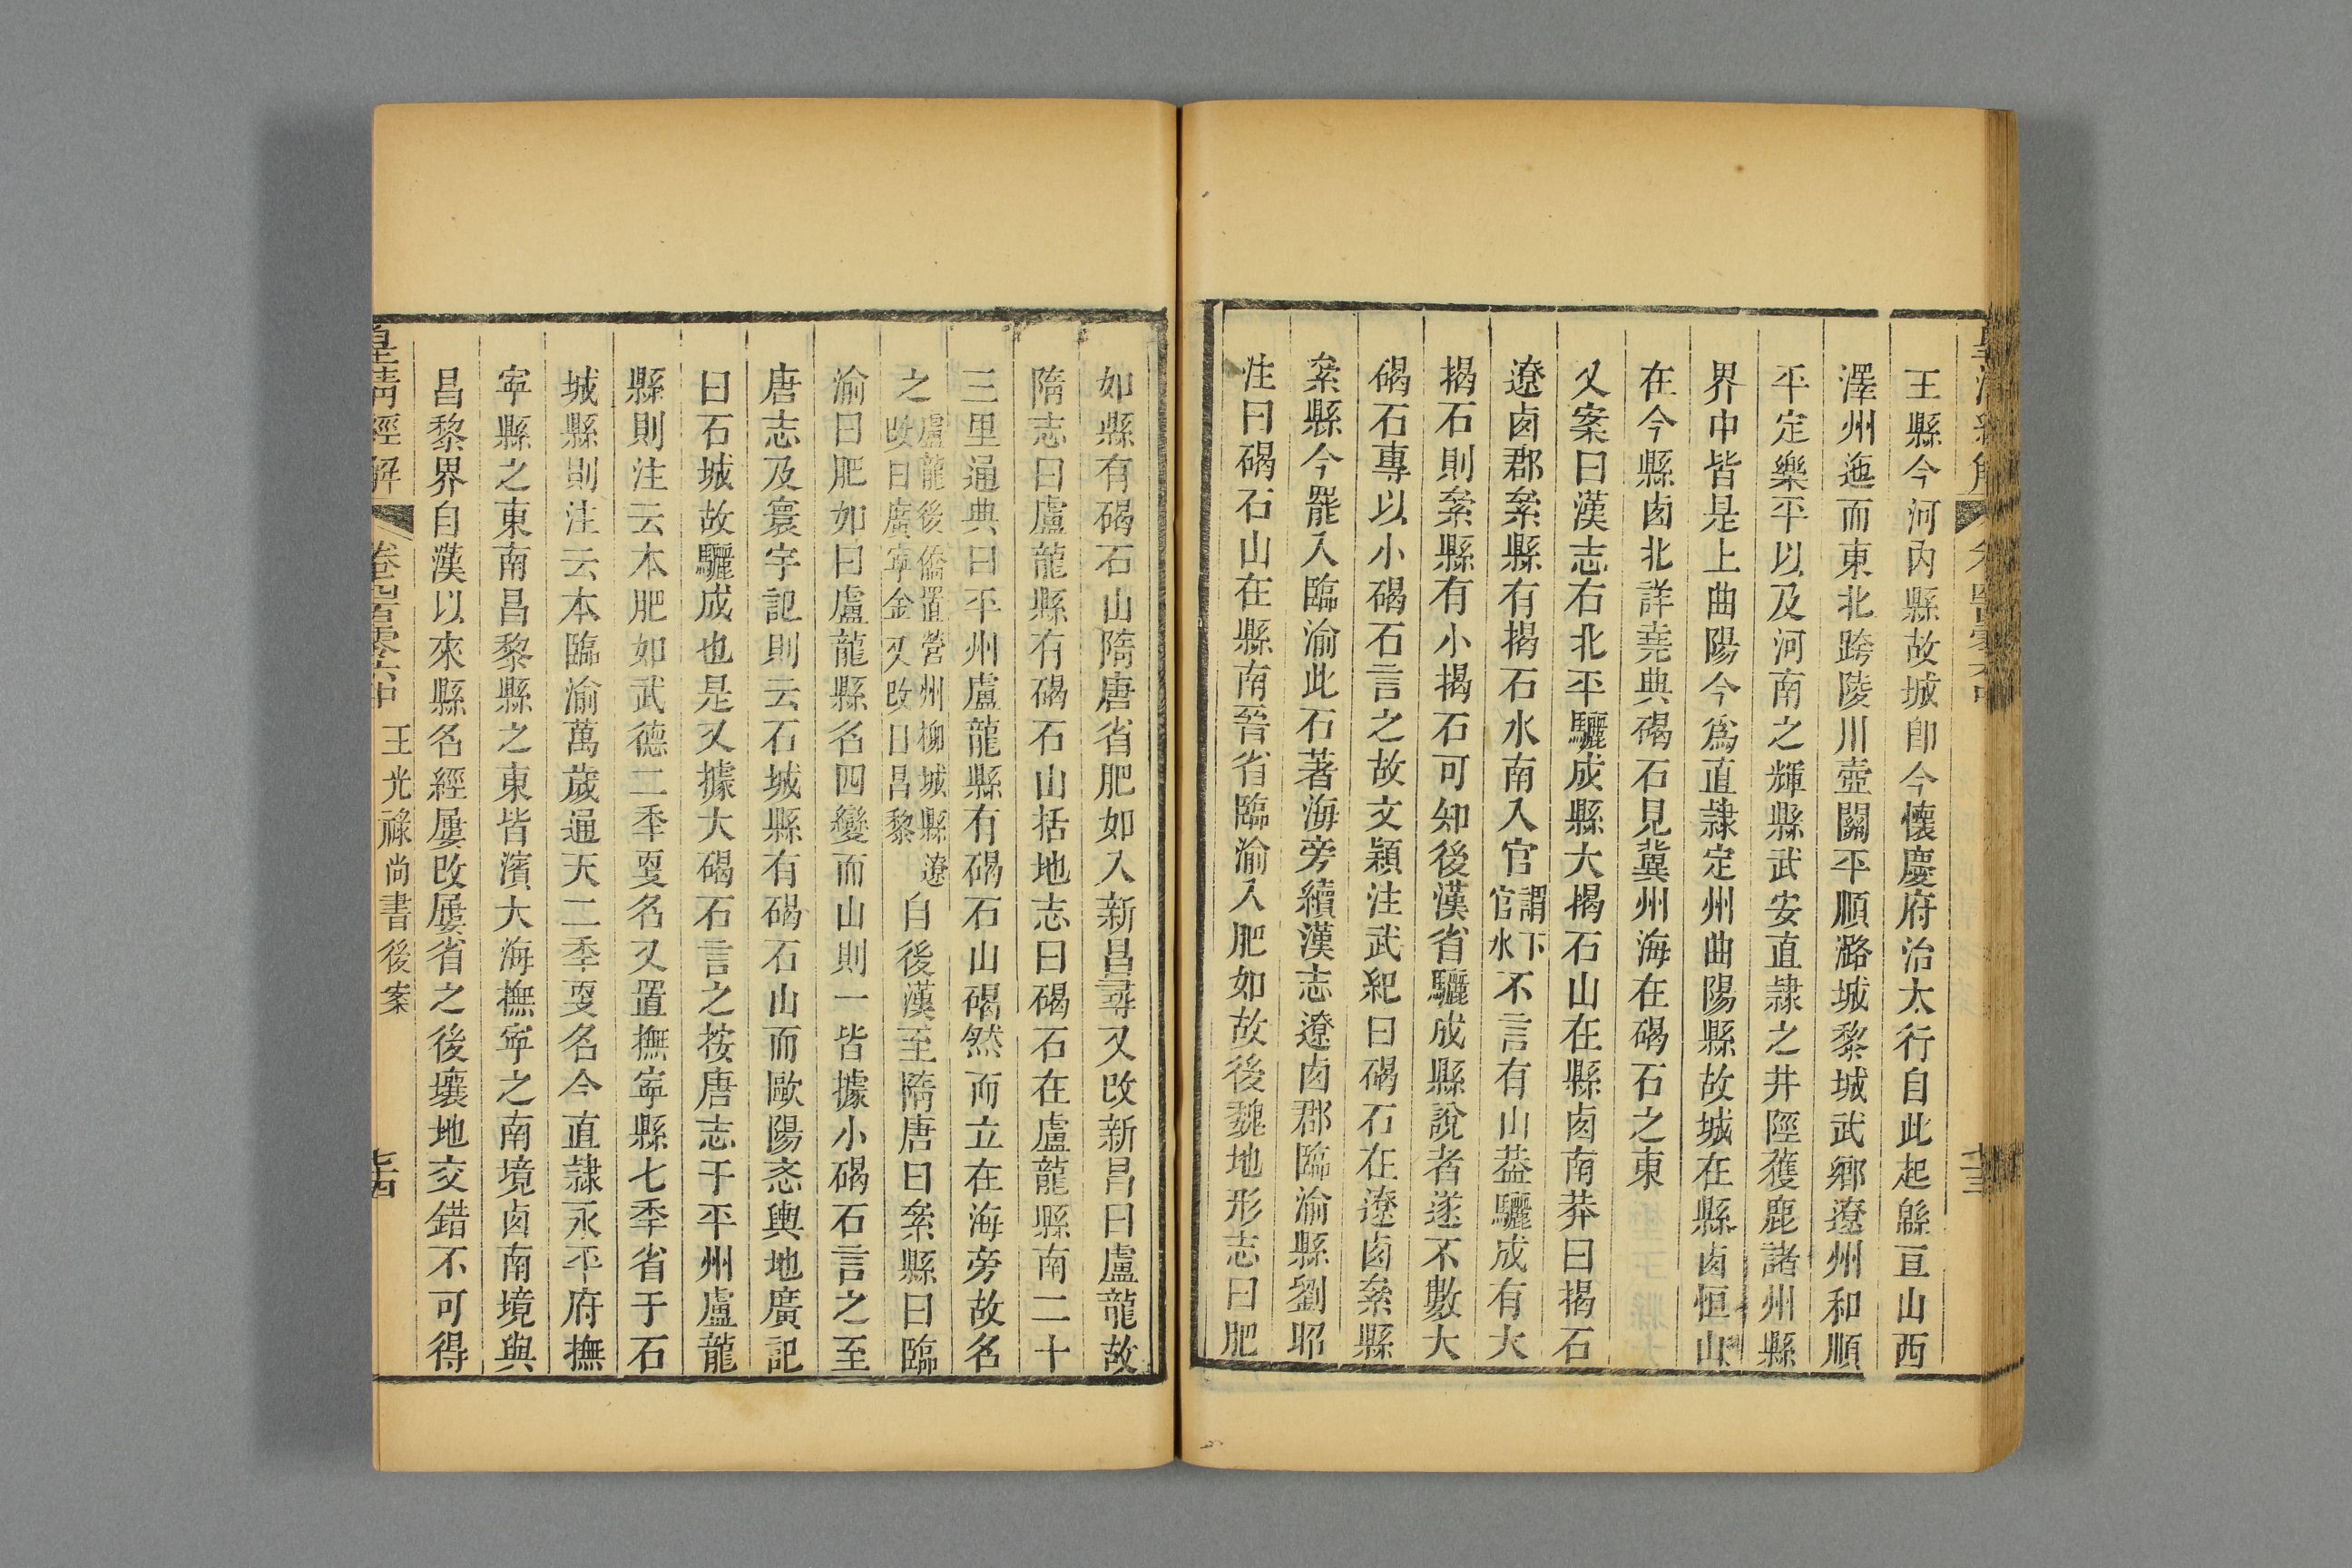 王縣今河內縣故城卽今懷慶府治太行自此起緜亘山西
澤州迤而東北跨陵川壺關平順潞城黎城武鄉遼州和順
平定樂平以及河南之輝縣武安直隷之井陘𫉬鹿諸州縣
界中皆是上曲陽今爲直隷定州曲陽縣故城在縣卤恒山
在今縣卤北詳堯典碣石見冀州海在碣石之東
又案曰漢志右北平驪成縣大揭石山在縣卤南莽曰揭石
遼卤郡絫縣有揭石水南入官謂下官水不言有山葢驪成有大
揭石則絫縣有小揭石可知後漢省驪成縣說者遂不數大
碣石專以小碣石言之故文穎注武紀曰碣石在遼卤絫縣
絫縣今罷入臨渝此石著海旁續漢志遼卤郡臨渝縣劉昭
注曰碣石山在縣南晉省臨渝入肥如故後魏地形志曰肥
如縣有碣石山隋唐省肥如入新昌尋又改新昌曰盧龍故
隋志曰盧龍縣有碣石山括地志曰碣石在盧龍縣南二十
三里通典曰平州盧龍縣有碣石山碣然而立在海旁故名
之盧龍後僑置營州柳城縣遼改曰廣寧金又改曰昌黎自後漢至隋唐曰絫縣曰臨
渝曰肥如曰盧龍縣名四變而山則一皆據小碣石言之至
唐志及寰宇記則云石城縣有碣石山而歐陽忞輿地廣記
曰石城故驪成也是又據大碣石言之按唐志于平州盧龍
縣則注云本肥如武德二秊㪅名又置撫寧縣七秊省于石
城縣則注云本臨渝萬歲通天二秊㪅名今直隷永平府撫
寧縣之東南昌黎縣之東皆濱大海撫寧之南境卤南境與
昌黎界自漢以來縣名經屢改屢省之後壤地交錯不可得
皇清經解 卷四百零六中 王光祿尚書後案 七十四